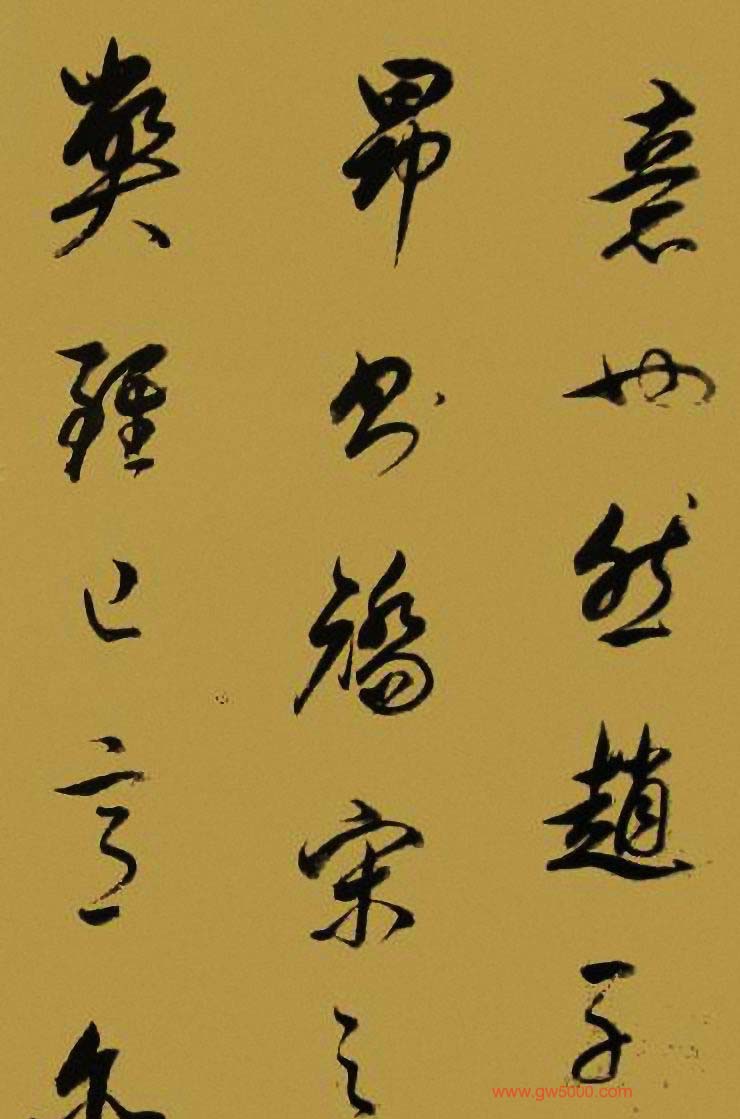 意也然趙子
昂書矯宋之
弊雖己意
www.gw5000.com